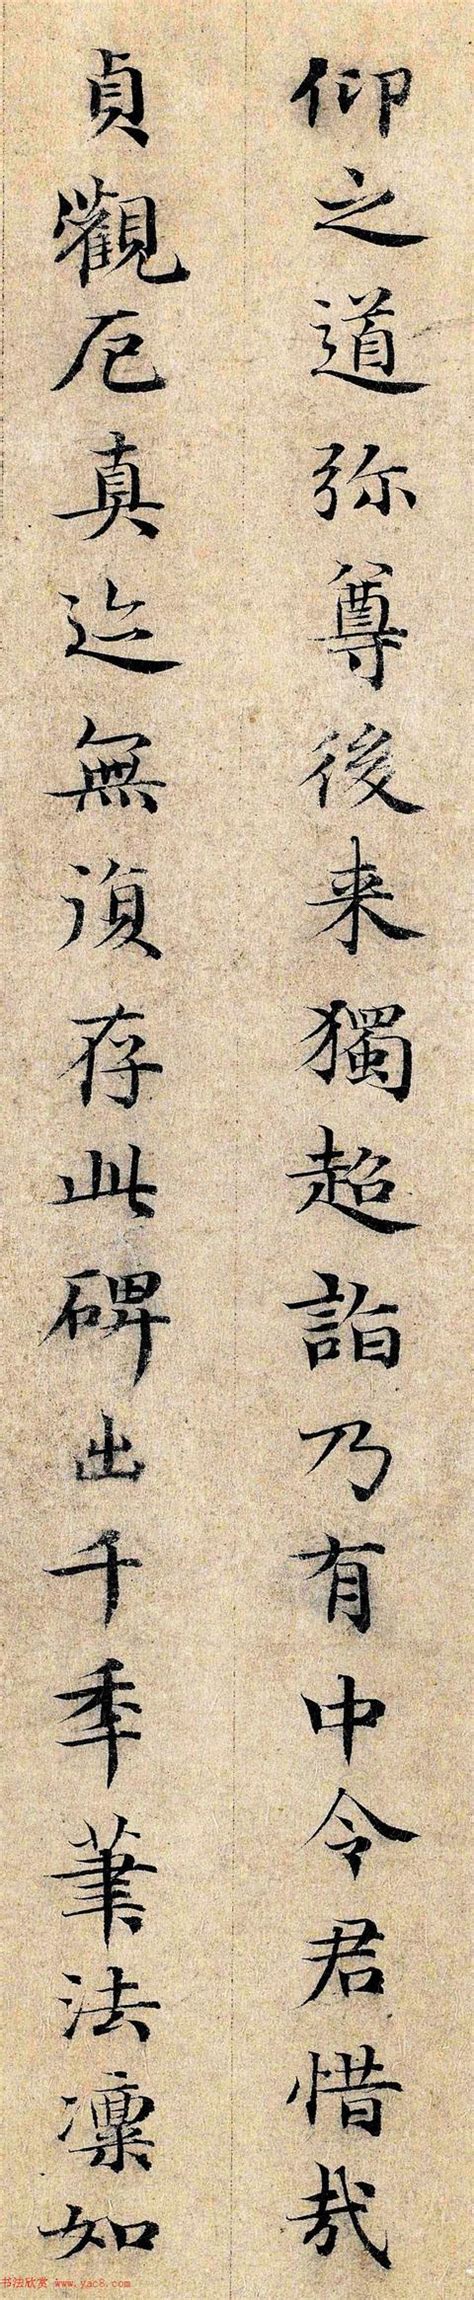 仰之道弥尊後来獨超詣乃有中令君惜哉
貞觀後真迹無須存此碑出千季筆法凜如
书法欣赏 www.yac8.com